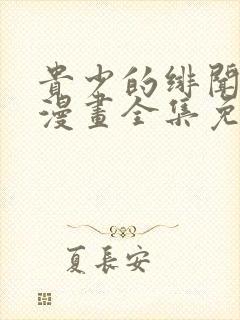 貴少的緋聞
漫畫全集免
夏長安